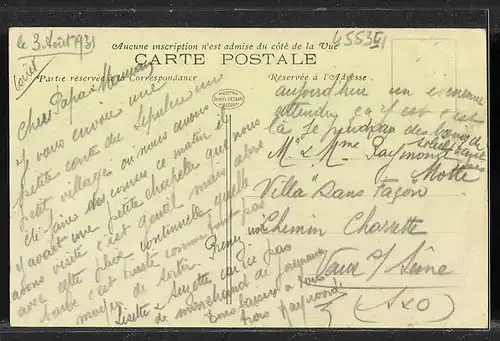 le 3 Août 1931
45536
Loiret
Aucune inscription n'est admise du côté de la Vue
CARTE POSTALE
Partie réservée à la Correspondance
Réservée à l'Adresse
Cher Papa & Maman
J vous envoie une
petite carte du
petit village où nous avons
été faire des courses ce matin il
y avait une petite chapelle que nous
avons visité c'est gentil mais
avec cette pluie continuelle quelle
barbe c'est triste comme tout pas
moyen de sortir.
Lisette & Suzette car ice pas
de marchand de journaux
bons baisers à tous
trois
aujourd'hui un évènement
attendu ça y est c'est
là je
des
M. & Mme Raymond
Motte
Villa "Sans Façon
Chemin Charrette
Vaux s/ Seine
(S&O)